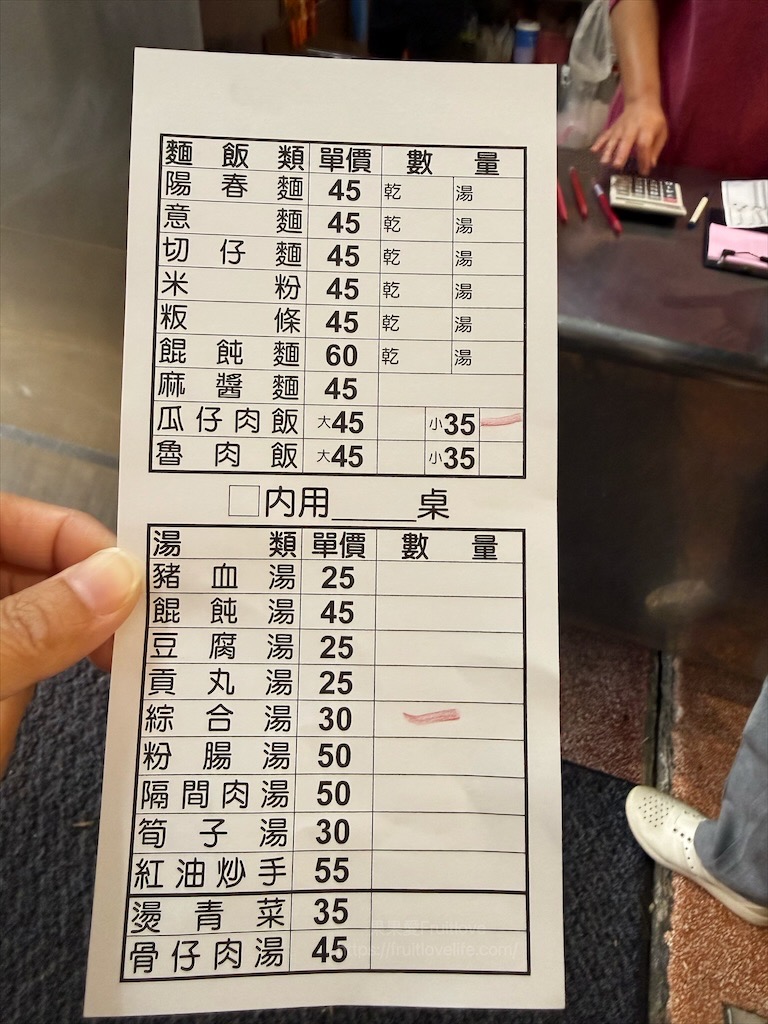 麵飯類 單價 數量
陽春麵 45 乾 湯
意麵 45 乾 湯
切仔麵 45 乾 湯
米粉 45 乾 湯
粄條 45 乾 湯
餛飩麵 60 乾 湯
麻醬麵 45
瓜仔肉飯 大45 小35
魯肉飯 大45 小35
□內用_____桌
湯類 單價 數量
豬血湯 25
餛飩湯 45
豆腐湯 25
貢丸湯 25
綜合湯 30
粉腸湯 50
隔間肉湯 50
筍子湯 30
紅油炒手 55
燙青菜 35
骨仔肉湯 45
https://fruitlovelife.com/